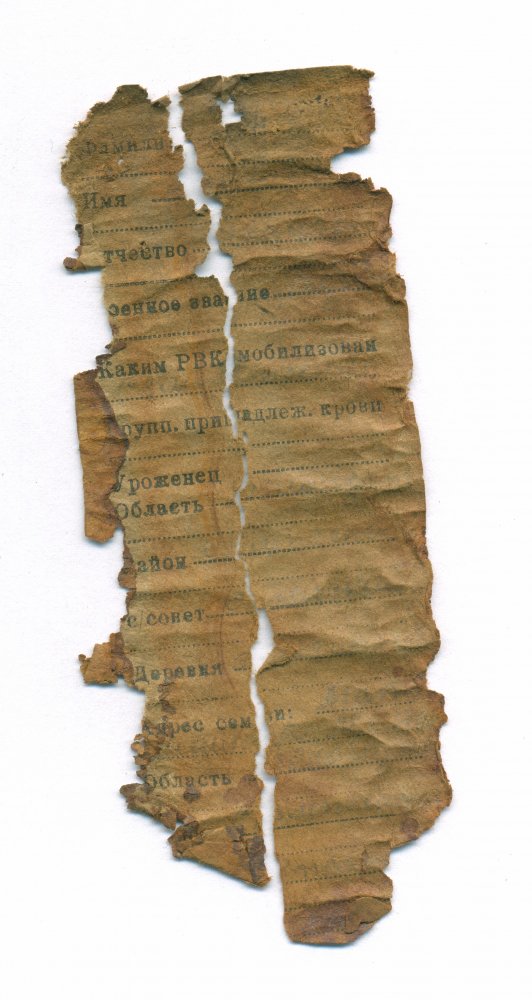 Фамили
Имя
тчество
оенное зва ние
Каким РВК мобилизован
рупп. при адлеж. крови
Уроженец
Область
айон
с/совет
Деревня
дрес сем и:
Область